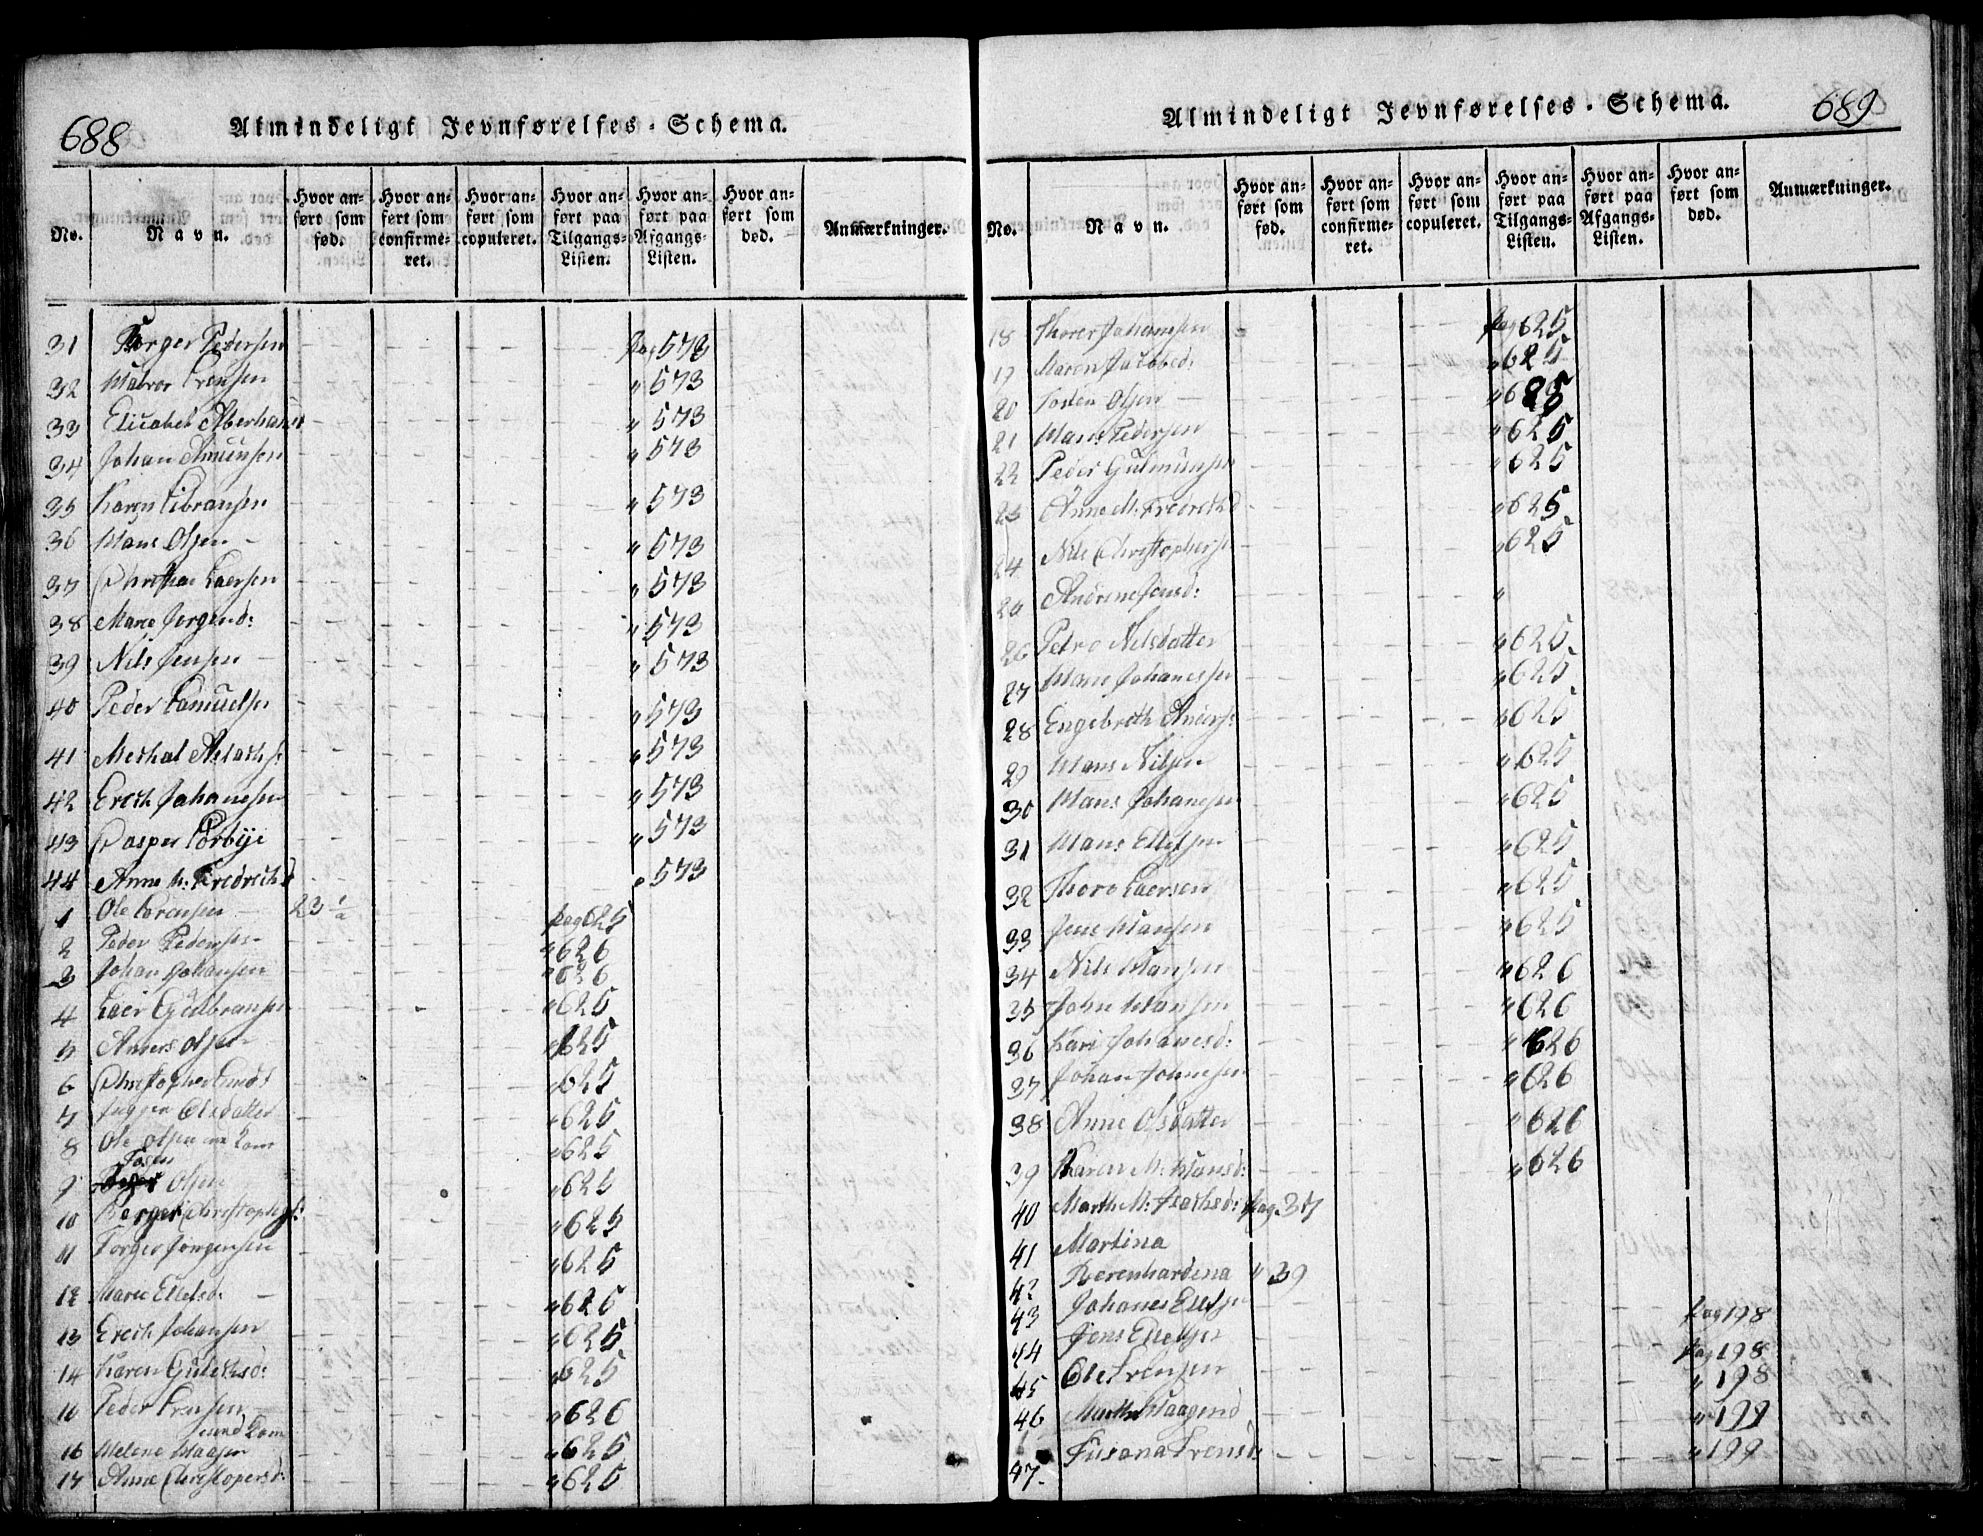 688
Almindeligt Jevnførelses-Schema.
No.
Navn.
Hvor anført som fød.
Hvor anført som confirmeret.
Hvor anført som copuleret.
Hvor anført paa Tilgangs-Listen.
Hvor anført paa Afgangs-Listen.
Hvor anført som død.
Anmærkninger.
31 Torger Pedersen pag 573
32 " 573
33 Elisabet " 573
34 Johan Amunsen " 573
35 Karen " 573
36 Hans Olsen " 573
37 Christian Laersen " 573
38 Maree Jorgensd: " 573
39 Nils Jensen " 573
40 Peder Samuelsen " 573
41 " 573
42 Erich Johansen " 573
43 Casper " 573
44 Anne M: Fredrichsd " 573
1 Ole Sorensen 23 pag 625
2 Peder Pedersen " 626
3 Johan Johansen " 626
4 Laer Gulbransen " 625
5 Anders Olsen " 625
6 Christopher " 625
7 Olsdatter " 625
8 Ole Olsen " 625
9 Tosten Olsen " 625
10 Berger Christophers: " 625
11 Torger Jorgensen " 625
12 Maree Ellefsd: " 625
13 Erich Johansen " 625
14 Karen " 625
16 Peder " 626
16 Helene " 625
17 Anne Christopersd: " 625
689
Almindeligt Jevnførelses-Schema.
No.
Navn.
Hvor anført som fød.
Hvor anført som confirmeret.
Hvor anført som copuleret.
Hvor anført paa Tilgangs-Listen.
Hvor anført paa Afgangs-Listen.
Hvor anført som død.
Anmærkninger.
18 Thorer Johannsen pag 625
19 Maren Jacobsd: " 625
20 Tosten Olsen " 625
21 Hans Pedersen " 625
22 Peder Gulmunsen " 625
23 Anne M: Fredrichsd " 625
24 Nils Christophersen " 625
Andrine Jensd: "
26 Petro Nilsdatter " 625
27 Hans Johanesen " 625
28 Engebreth Anders: " 625
29 Hans Nilsen " 625
30 Hans Johanesen " 625
31 Hans Ellefsen " 625
32 Thoro Laersen " 625
33 Jens Hansen " 625
34 Nils Hansen " 626
35 John Hansen " 626
36 Kari Johanesd: " 626
37 Johan Johnsen " 626
38 Anne Olsdatter " 626
39 Karen M: Hansd: " 626
40 Marth M: pag 37
41 Martina
42 Berenhardina " 39
43 Johanes Ellefsen pag 198
44 Jens Ellefsen pag 198
45 Ole " 198
46 Marthe Haagend " 199
47 Susana " 199